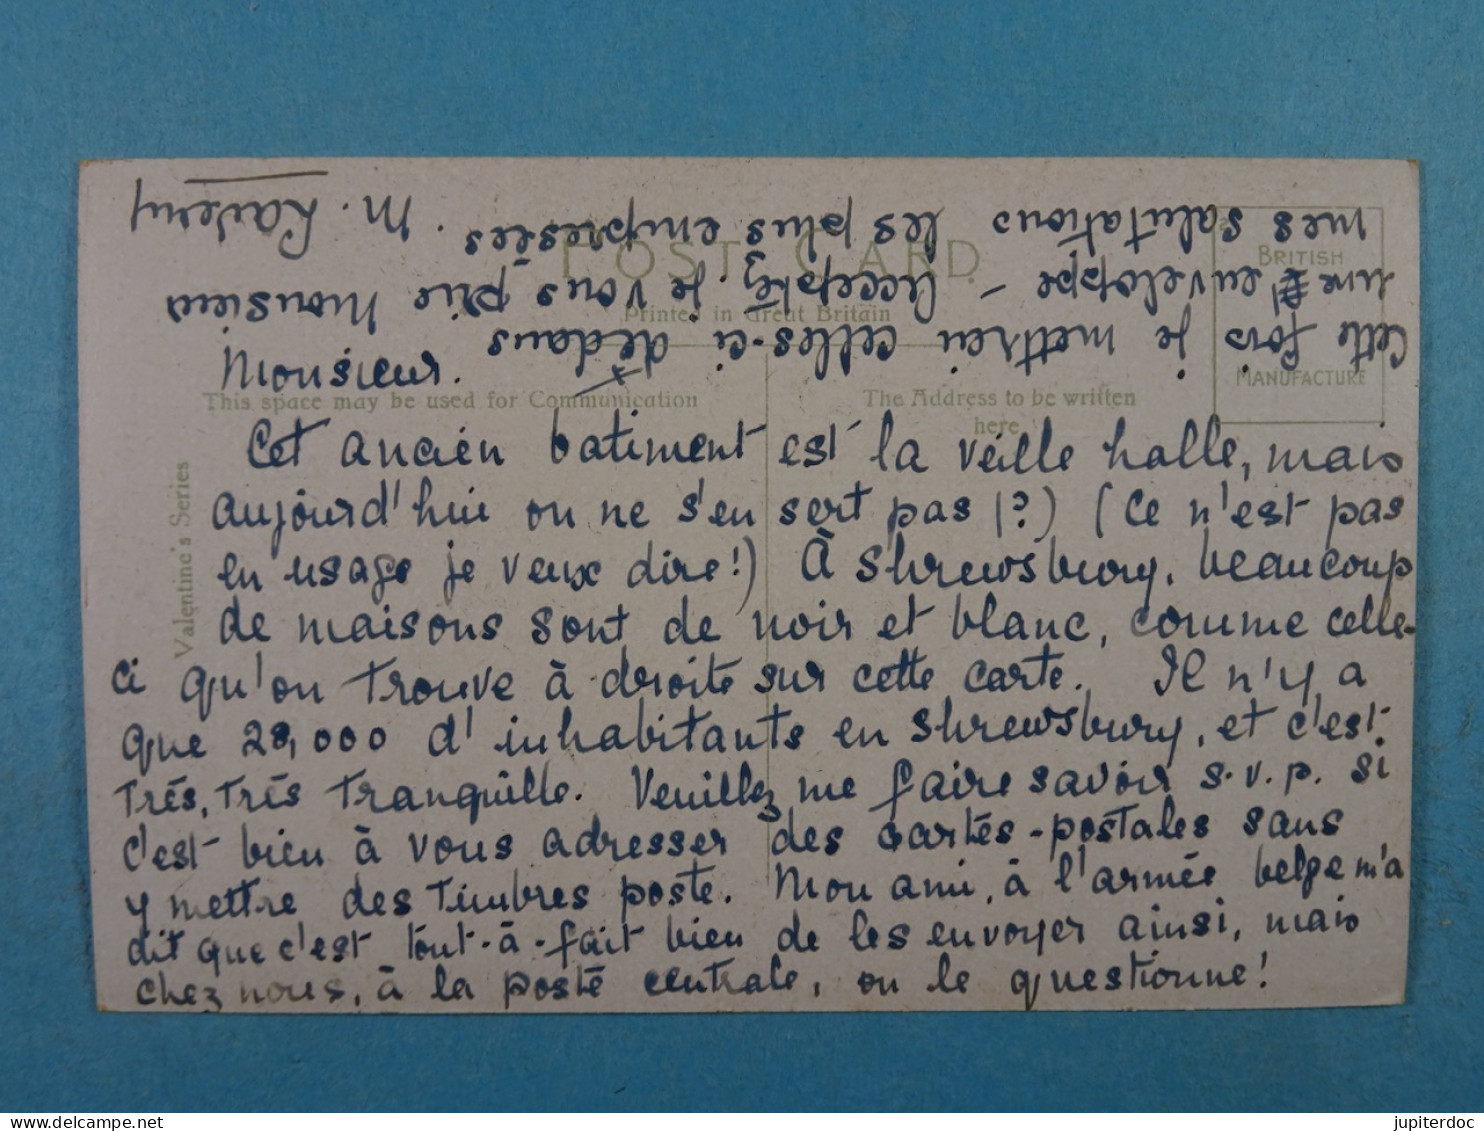 POST CARD
Printed in Great Britain
BRITISH
MANUFACTURE
This space may be used for Communication
The Address to be written
here
Valentine's Series
Monsieur.
Cet ancien batiment est la veille halle, mais
aujourd'hui on ne s'en sert pas (?) (Ce n'est pas
en usage je veux dire!) À Shrewsbury, beaucoup
de maisons sont de noir et blanc, comme celle-
ci qu'on trouve à droite sur cette carte. Il n'y a
que 28,000 d'inhabitants en Shrewsbury, et c'est
trés, trés tranquille. Veuillez me faire savoir s.v.p. si
c'est bien à vous adresser des cartés-postales sans
y mettre des timbres poste. Mon ami, à l'armée belge m'a
dit que c'est tout-à-fait bien de les envoyer ainsi, mais
chez nous, à la posté centrale, on le questionne!
Cette fois je mettrai celles-ci dedans
une enveloppe - Acceptez je vous prie Monsieur
mes salutations les plus empresées
M.
jupiterdoc